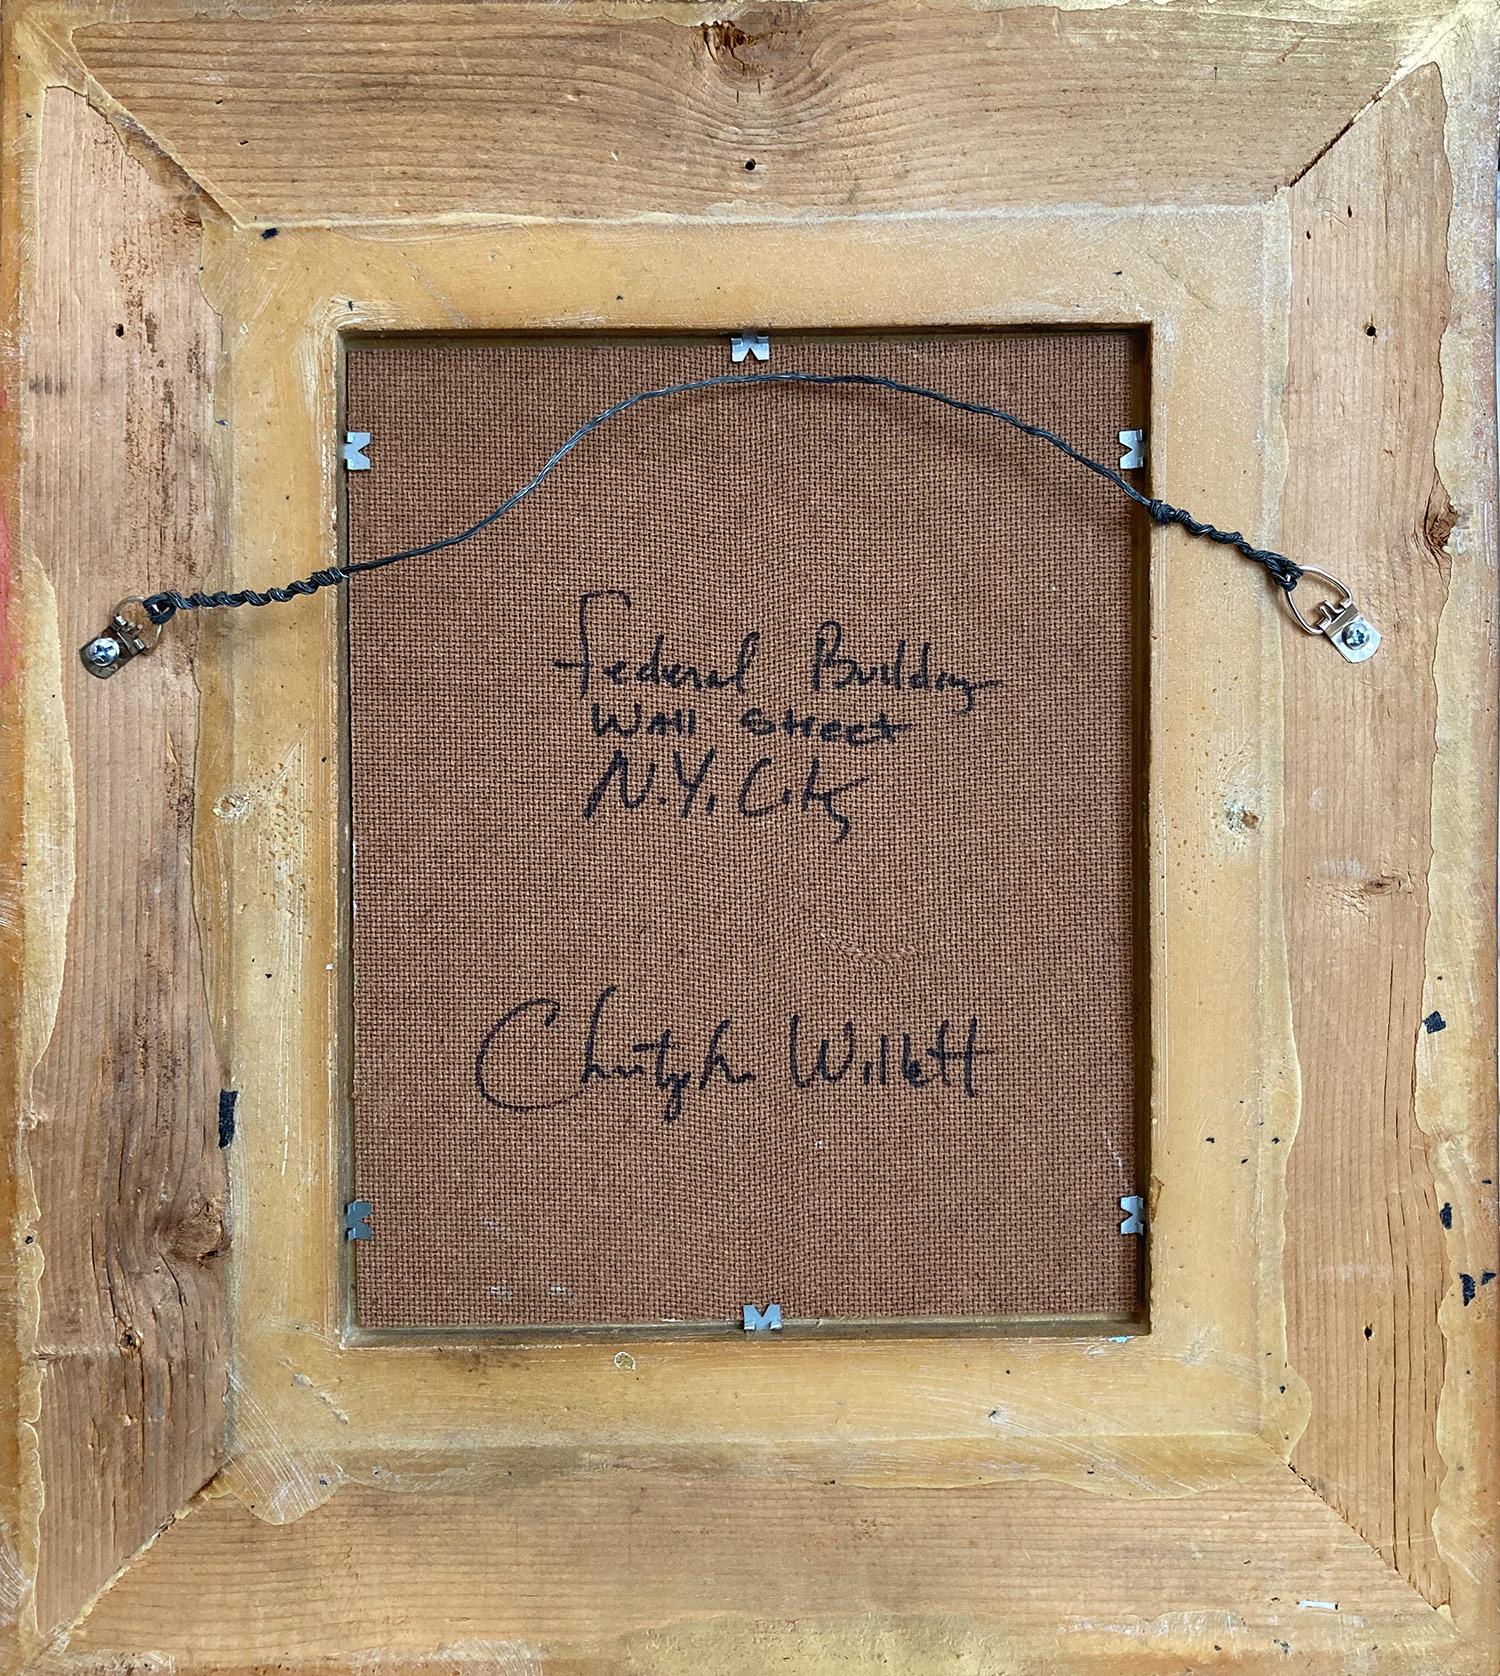 Federal Building
Wall Street
N.Y. City
Christopher Willett